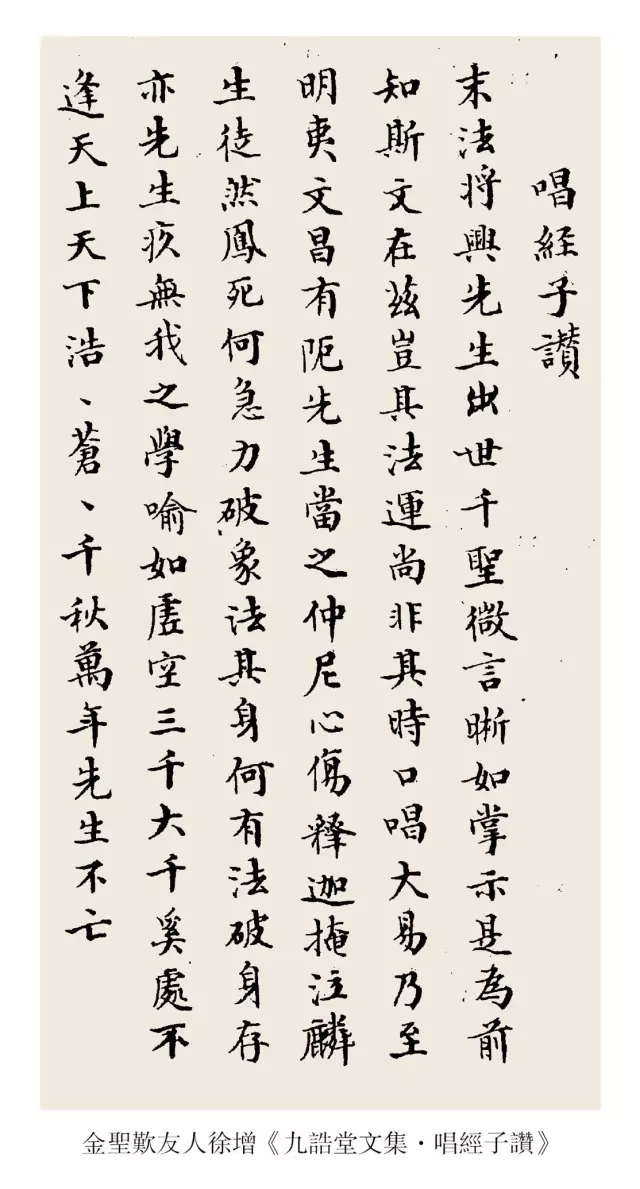 唱經子讚
末法将興先生出世千聖微言晰如掌示是為前
知斯文在兹豈其法運尚非其時口唱大易乃至
明夷文昌有阨先生當之仲尼心傷释迦掩泣麟
生徒然鳳死何急力破象法其身何有法破身存
亦先生疚無我之學喻如虛空三千大千奚處不
逢天上天下浩、蒼、千秋萬年先生不亡
金聖歎友人徐增《九誥堂文集·唱經子讚》